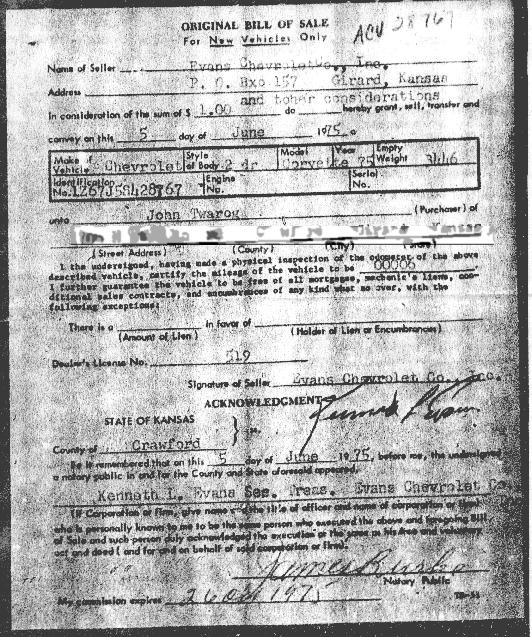 ORIGINAL BILL OF SALE
For New Vehicles Only
ACU 28767
Name of Seller Evans Chevrolet Co., Inc.
P. O. Bxo 157 Girard, Kansas
Address
and toher considerations
In consideration of the sum of $ 1.00 do hereby grant, sell, transfer and
convey on this 5 day of June 1975, a
Make of Vehicle Chevrolet Style of Body 2 dr Model Corvette Year 75 Empty Weight 3446
Identification No. 1Z67J5S428767 Engine No. Serial No.
unto John Twarog (Purchaser) of
Girard Kansas
(Street Address) (County) (City) (State)
I the undersigned, having made a physical inspection of the odometer of the above
described vehicle, certify the mileage of the vehicle to be 00006
I further guarantee the vehicle to be free of all mortgages, mechanic's liens, con-
ditional sales contracts, and encumbrances of any kind what so over, with the
following exceptions:
There is a in favor of
(Amount of Lien) (Holder of Lien or Encumbrances)
Dealer's License No. 519
Signature of Seller Evans Chevrolet Co., Inc.
ACKNOWLEDGMENT
Kenneth L Evans
STATE OF KANSAS
ss.
County of Crawford
Be it remembered that on this 5 day of June 1975, before me, the undersigned
a notary public in and for the County and State aforesaid appeared.
Kenneth L. Evans Sec. Treas. Evans Chevrolet Co
(If Corporation or firm, give name and the title of officer and name of corporation or firm)
who is personally known to me to be the same person who executed the above and foregoing Bill
of Sale and such person duly acknowledged the execution of the same as his free and voluntary
act and deed (and for and on behalf of said corporation or firm).
James
Notary Public
My commission expires 26 Oct 1975
TR-53